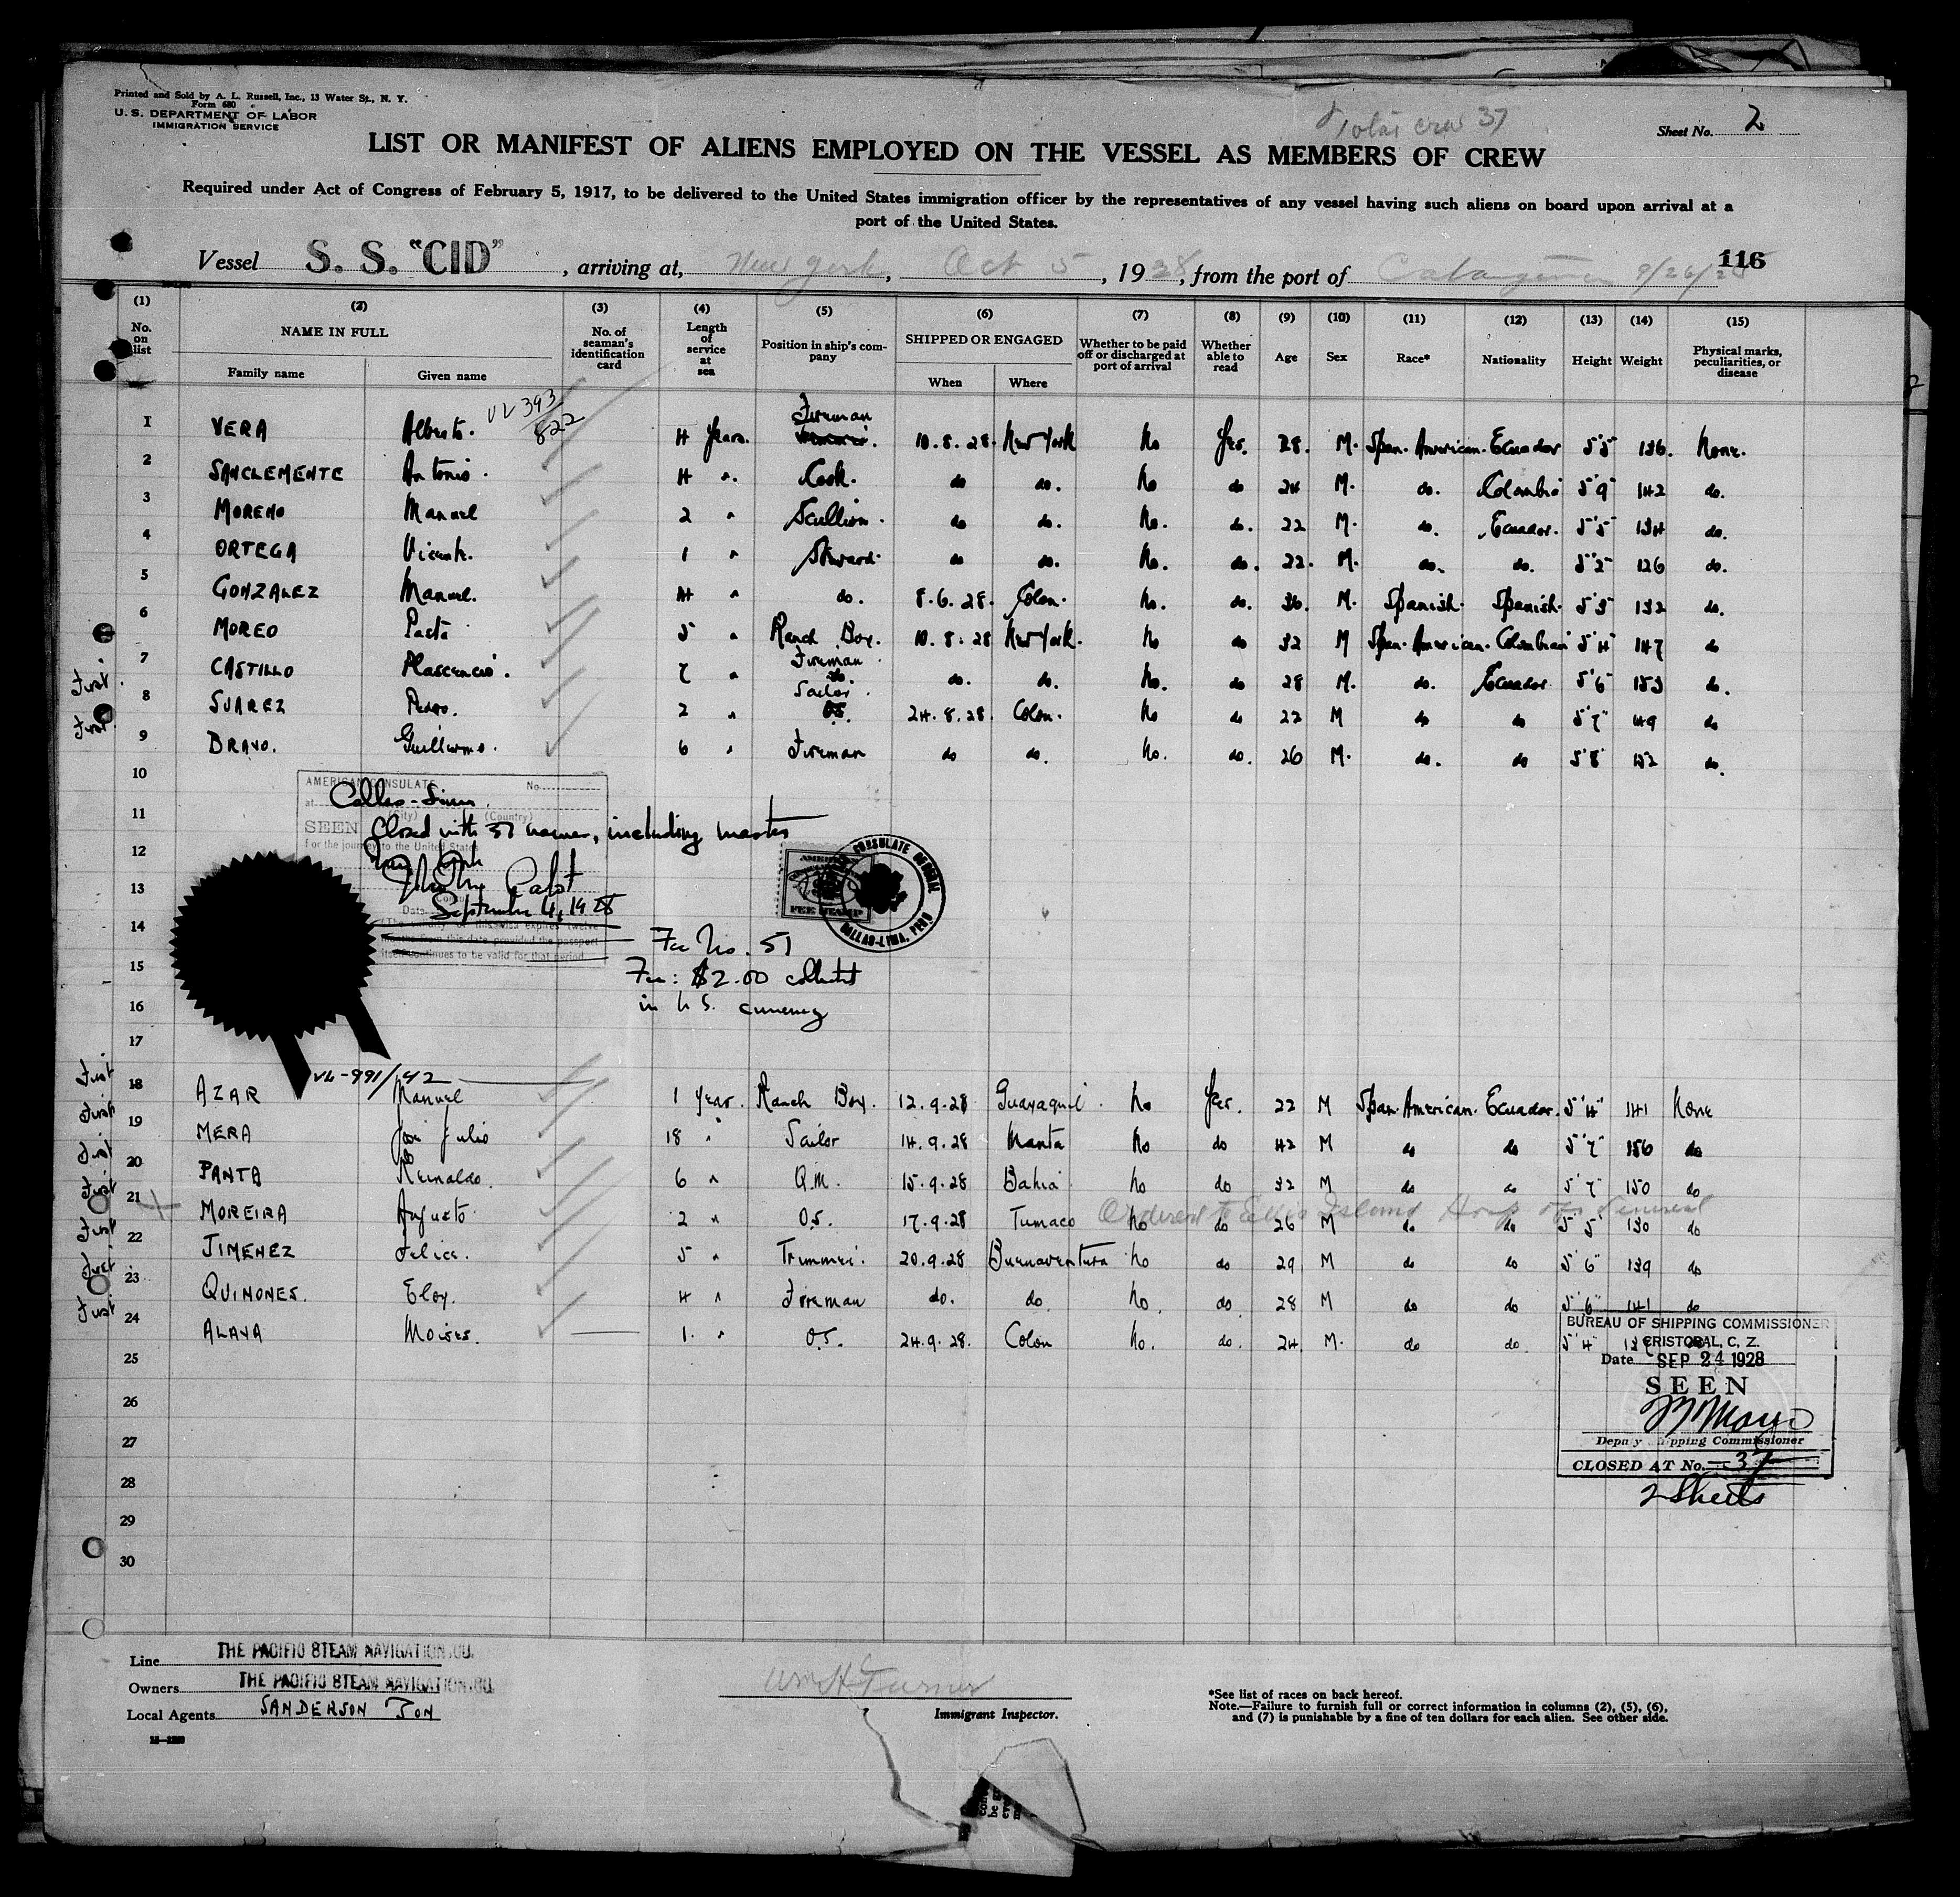 Printed and Sold by A. L. Russell, Inc., 13 Water St., N. Y.
Form 680
U. S. DEPARTMENT OF LABOR
IMMIGRATION SERVICE
Total crew 37
Sheet No. 2
LIST OR MANIFEST OF ALIENS EMPLOYED ON THE VESSEL AS MEMBERS OF CREW
Required under Act of Congress of February 5, 1917, to be delivered to the United States immigration officer by the representatives of any vessel having such aliens on board upon arrival at a
port of the United States.
116
Vessel S. S. "CID", arriving at, New York, Oct 5, 1928, from the port of 9/26/28
(1) (2) (3) (4) (5) (6) (7) (8) (9) (10) (11) (12) (13) (14) (15)
No. on list NAME IN FULL No. of seaman's identification card Length of service at sea Position in ship's company SHIPPED OR ENGAGED Whether to be paid off or discharged at port of arrival Whether able to read Age Sex Race* Nationality Height Weight Physical marks, peculiarities, or disease
Family name Given name When Where
393/822
1 VERA Alberto. 4 Years. Fireman 10.8.28 New York No Yes. 28. M. Span. American. Ecuador 5'5" 136. None.
2 SANCLEMENTE Antonio. 4 " Cook. do do. No do 24 M. do. Colombia 5'9" 142 do.
3 MORENO Manuel 2 " Scullion. do do. No. do. 22 M. do. Ecuador. 5'5" 134 do.
4 ORTEGA Vicente. 1 " Steward. do do. No. do. 22. M. do. do. 5'2" 126 do.
5 GONZALEZ Manuel. 14 " do. 8.6.28. Colon. No. do. 36. M. Spanish. Spanish. 5'3" 132 do.
6 MOREO Pacta 5 " Ranch Boy. 10.8.28 New York. No do 32 M Span. American. Colombian 5'4" 147 do
First. 7 CASTILLO Plascencio. 7 " Fireman do. do. do. No. do 28 M. do. Ecuador 5'6" 153 do.
First 8 SUAREZ Pedro. 2 " Sailor. OS. 24.8.28. Colon. No do 22 M do do 5'7" 149 do
9 BRAVO. Guillermo. 6 " Fireman do do. No. do. 26 M. do. do 5'8" 152 do.
10
11
12
13
14
15
16
17
AMERICAN CONSULATE No.
at Callao-Lima
(City) (Country)
SEEN
Closed with 37 names, including master
For the journey to the United States
New York
September 4, 1928
itself continues to be valid for that period
AMERICAN
FEE STAMP
CONSULATE GENERAL
CALLAO-LIMA, PERU
Fee No. 51
Fee: $2.00 collected
in U.S. currency
991/42
First 18 AZAR Manuel 1 Year. Ranch Boy. 12.9.28 Guayaquil. No Yes. 22 M Span. American. Ecuador. 5'4" 141 None
First 19 MERA José Julio 18 " Sailor 14.9.28 Manta No do 42 M do do 5'7" 156 do
First 20 PANTA Reinaldo. 6 " Q.M. 15.9.28 Bahia No do 32 M do do 5'7" 150 do
First 21 MOREIRA Augusto 2 " O.S. 17.9.28 Tumaco No do 26 M do do 5'5" 130 do
Ordered to Ellis Island Hosp
First 22 JIMENEZ Felix. 5 " Trimmer. 20.9.28 Buenaventura No do 29 M do do 5'6" 139 do
First 23 QUINONES. Eloy. 4 " Fireman do. do No. do 28 M do do 5'6" 141 do
First 24 ALAVA Moises. 1. " O.S. 24.9.28. Colon No. do. 24 M. do do 5'4"
25
26
27
28
29
30
BUREAU OF SHIPPING COMMISSIONER
CRISTOBAL, C. Z.
Date SEP 24 1928
SEEN
Deputy Shipping Commissioner
CLOSED AT No. 37
2 Sheets
Line THE PACIFIC STEAM NAVIGATION CO.
Owners THE PACIFIC STEAM NAVIGATION CO.
Local Agents SANDERSON & SON
Wm H Turner
Immigrant Inspector.
*See list of races on back hereof.
Note.—Failure to furnish full or correct information in columns (2), (5), (6),
and (7) is punishable by a fine of ten dollars for each alien. See other side.